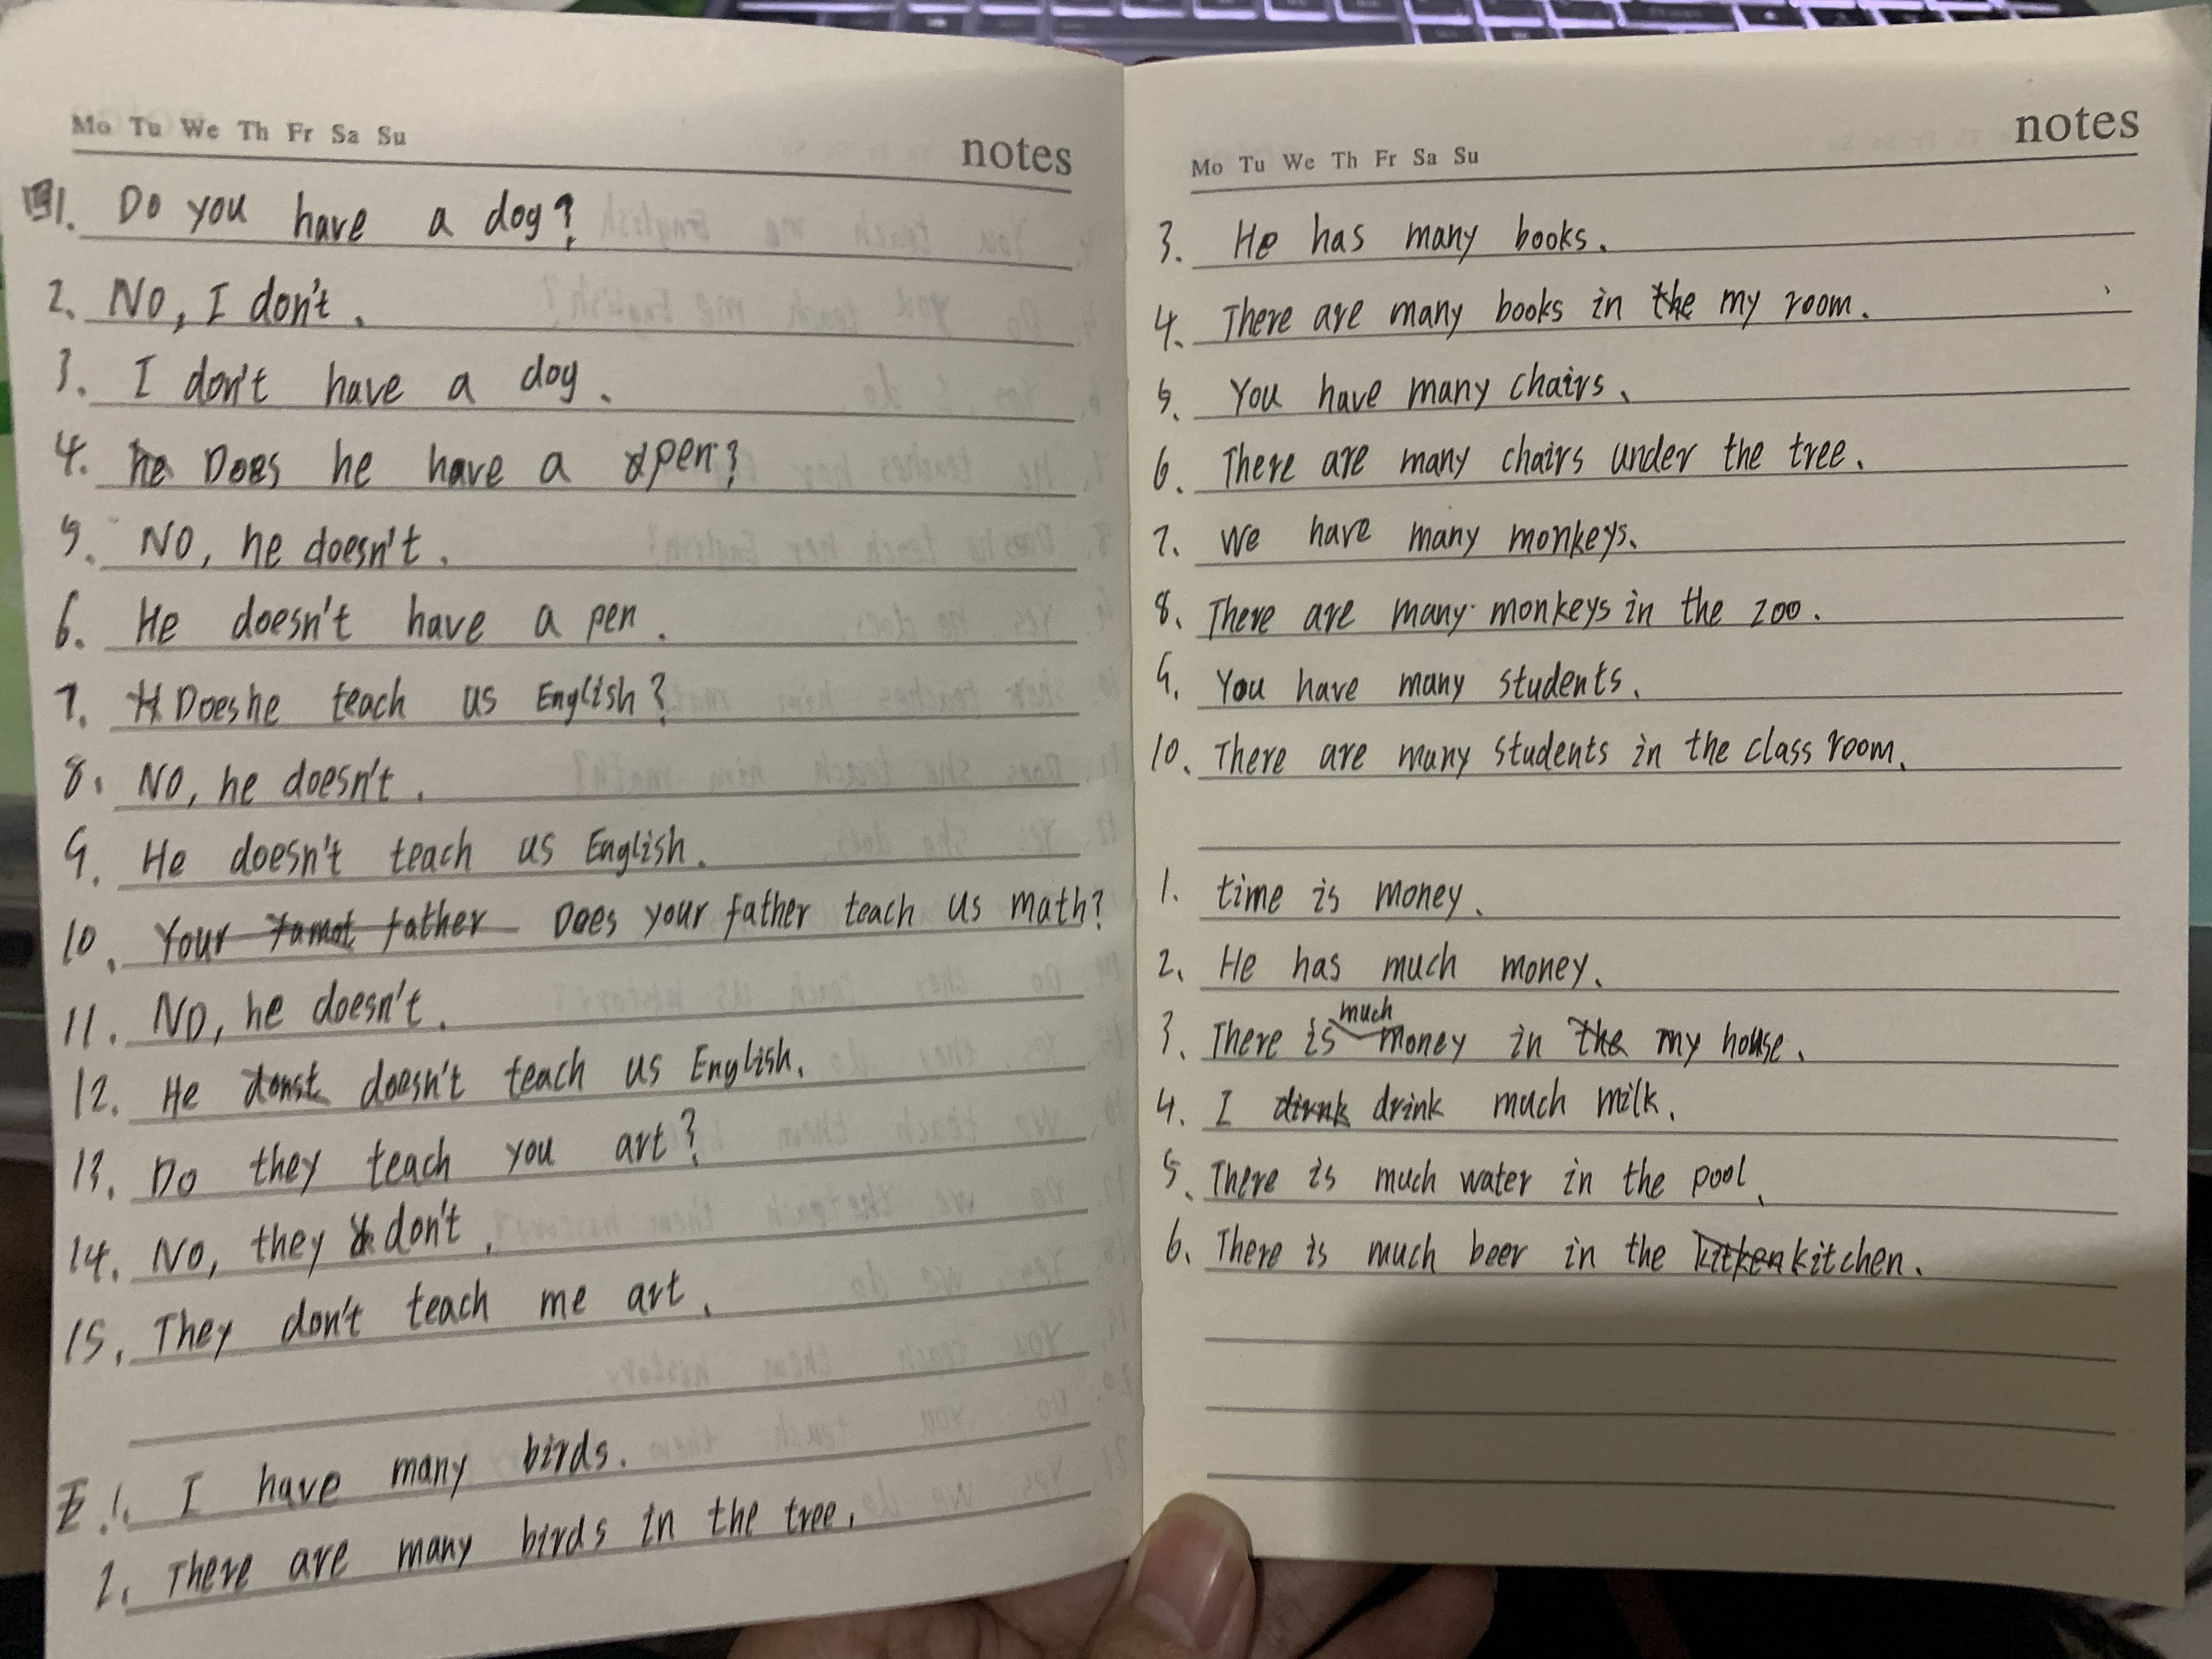 Mo Tu We Th Fr Sa Su
notes
1. Do you have a dog?
2. No, I don't.
3. I don't have a dog.
4. he Does he have a pen?
5. No, he doesn't.
6. He doesn't have a pen.
7. H Does he teach us English?
8. No, he doesn't.
9. He doesn't teach us English.
10. Your famot father Does your father teach us math?
11. No, he doesn't.
12. He donst doesn't teach us English.
13. Do they teach you art?
14. No, they don't.
15. They don't teach me art.
1. I have many birds.
2. There are many birds in the tree.
Mo Tu We Th Fr Sa Su
notes
3. He has many books.
4. There are many books in the my room.
5. You have many chairs.
6. There are many chairs under the tree.
7. We have many monkeys.
8. There are many monkeys in the zoo.
9. You have many students.
10. There are many students in the class room.
1. time is money.
2. He has much money.
3. There is much money in the my house.
4. I dirnk drink much milk.
5. There is much water in the pool.
6. There is much beer in the kitken kitchen.